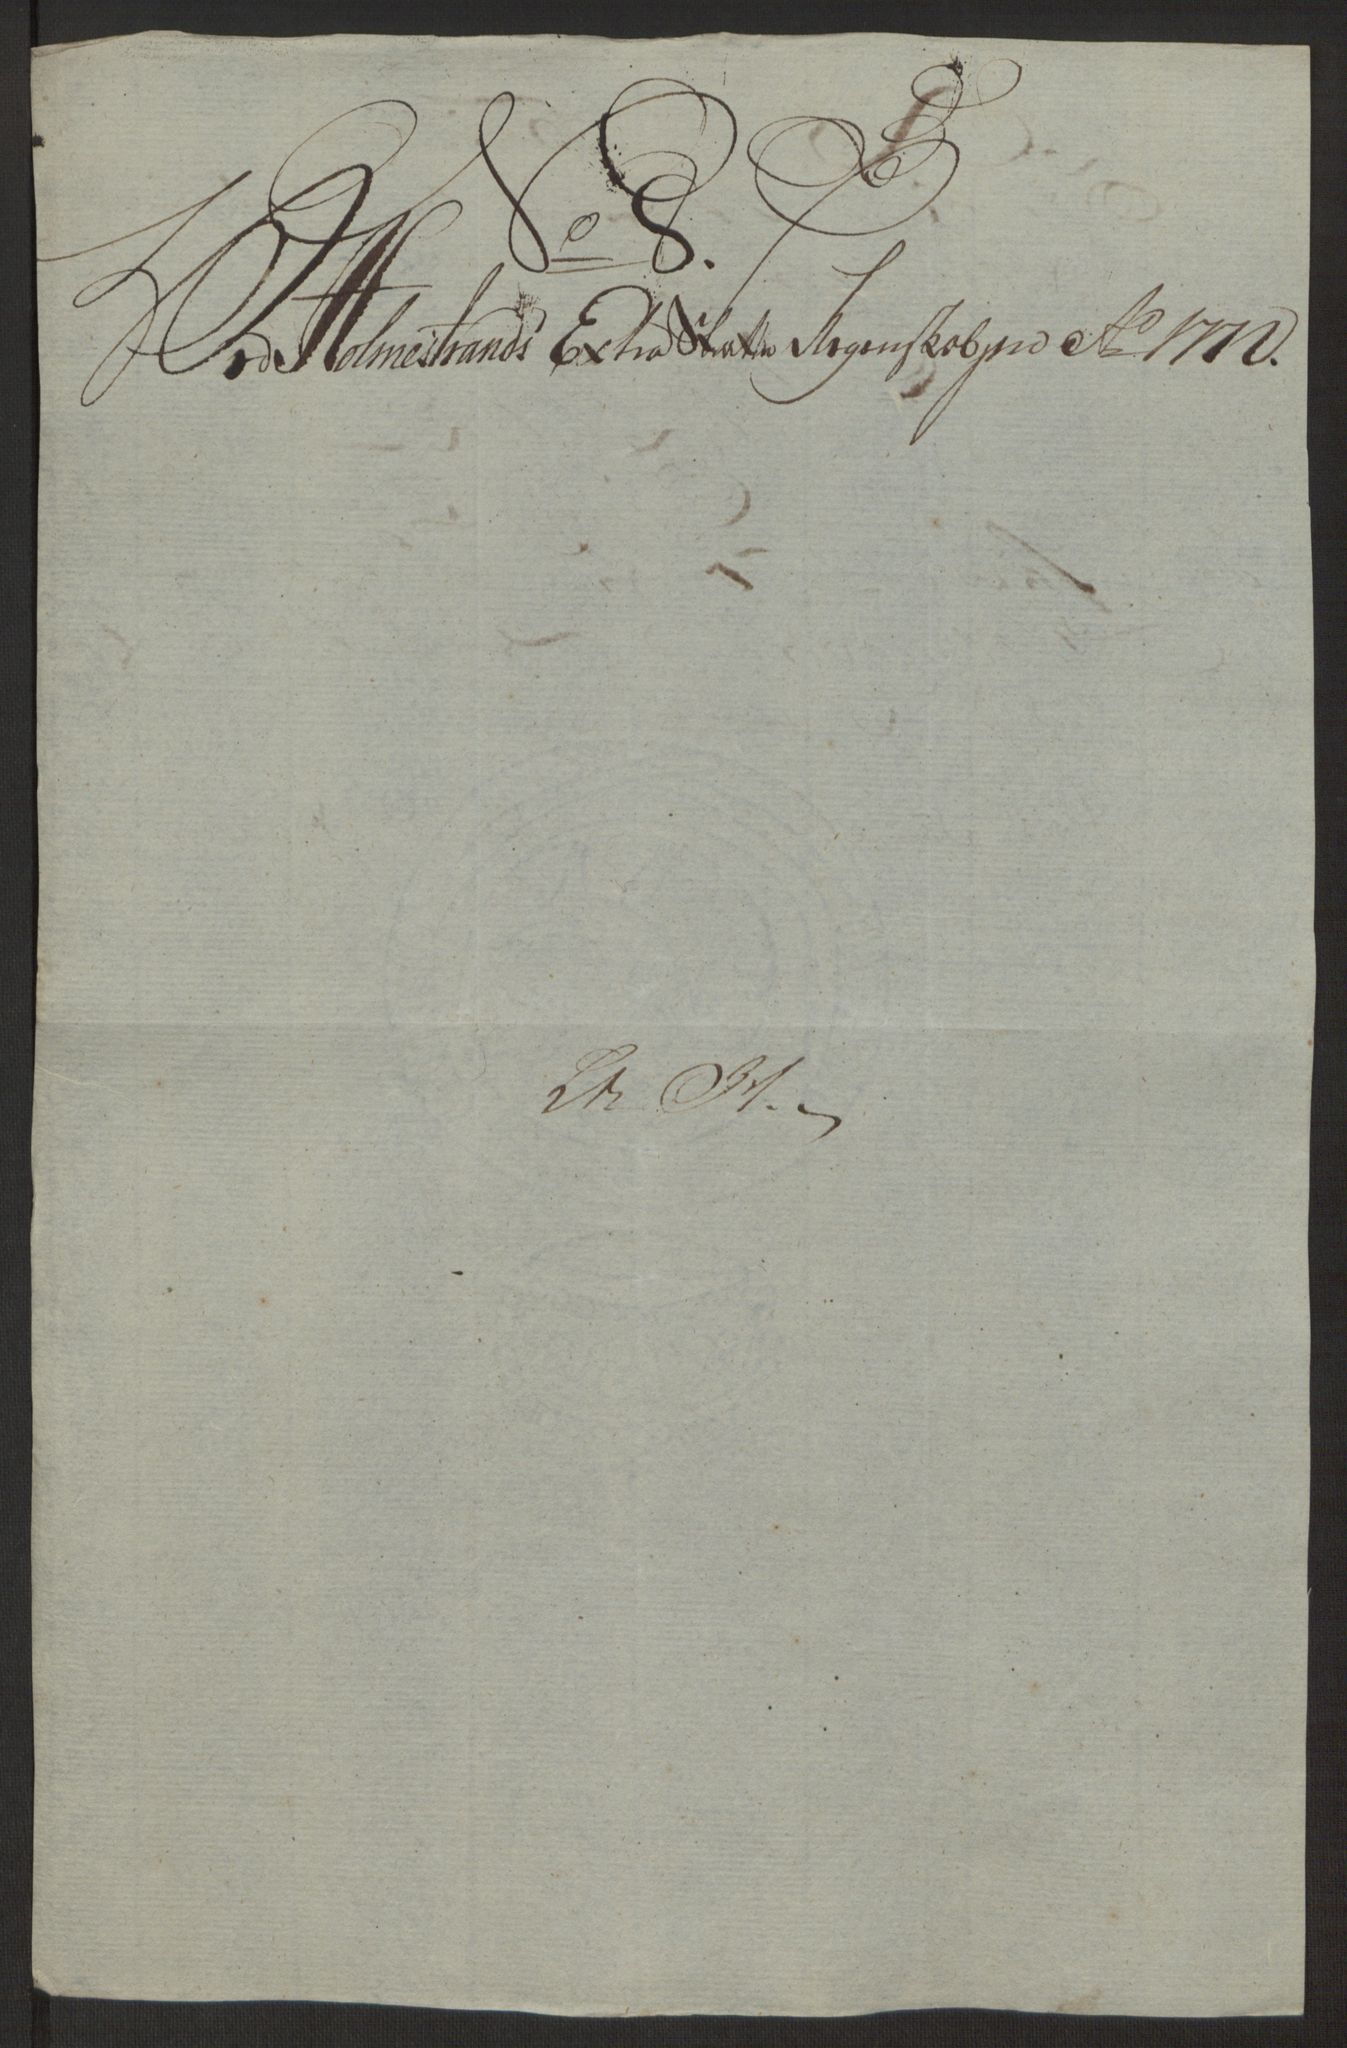 No 8.
Ved Holmestrands Extra Skatte Regenskab pro Ao 1772.
Ltr H.